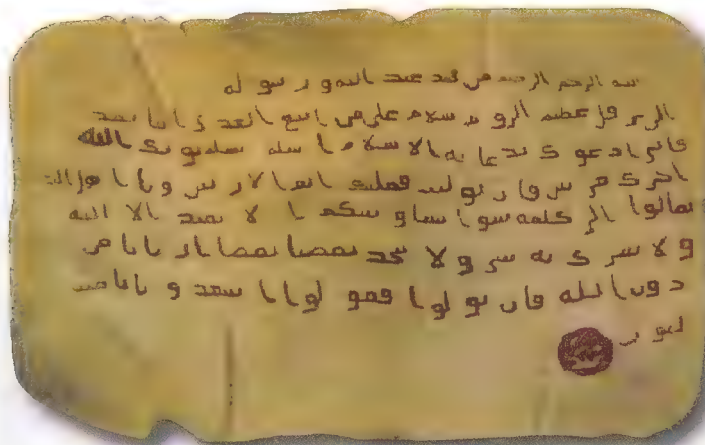 بسم الله الرحمن الرحيم من محمد عبد الله و رسوله
الى هرقل عظيم الروم سلام على من اتبع الهدى اما بعد
فانى ادعوك بدعاية الاسلام اسلم تسلم يوتك الله
اجرك مرتين فان توليت فعليك اثم الاريسين و يا اهل
تعالوا الى كلمة سوا بيننا و بينكم ا لا نعبد الا الله
و لا نشرك به شي و لا يتخذ بعضنا بعضا اربابا من
دون الله فان تولوا فقولوا اشهد و بانا مسـ
لمون